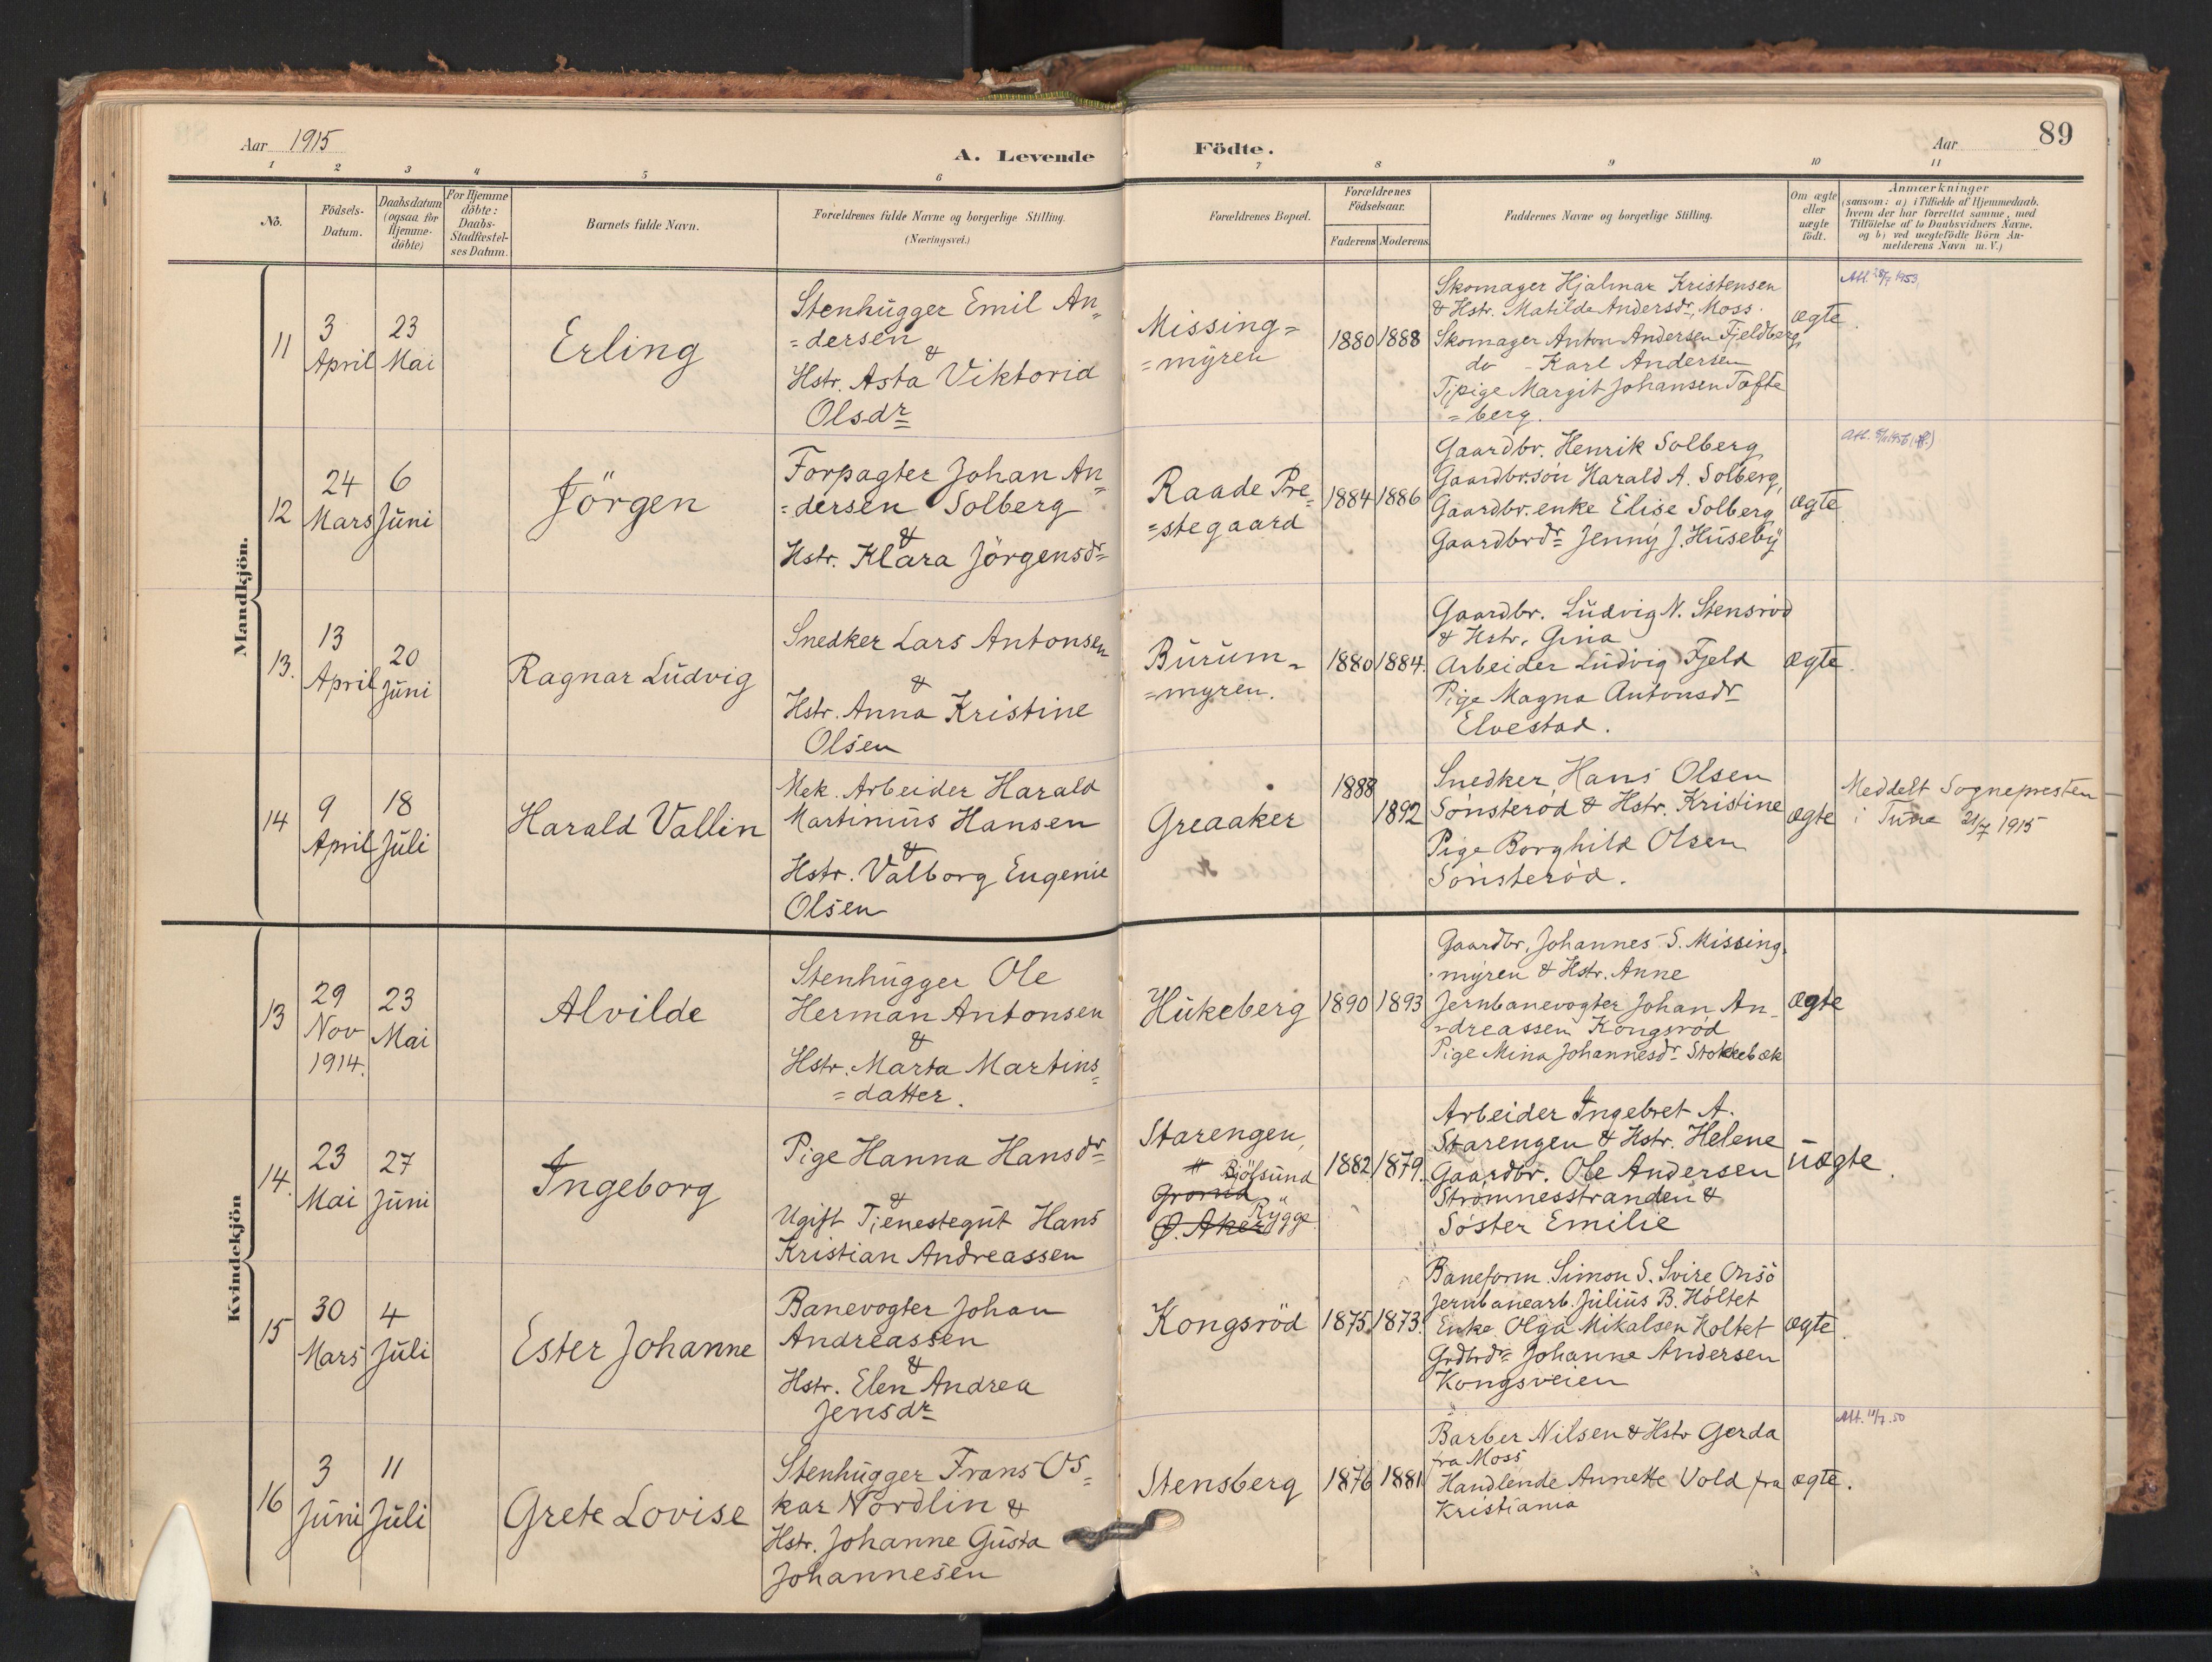 Aar 1915
A. Levende Födte.
Aar
89
1 2 3 4 5 6 7 8 9 10 11
No.
Födsels-
Datum.
Daabsdatum
(ogsaa for
Hjemme-
döbte)
For Hjemme
döbte:
Daabs-
Stadfæstel-
ses Datum.
Barnets fulde Navn.
Forældrenes fulde Navne og borgerlige Stilling.
(Næringsvei.)
Forældrenes Bopæl.
Forældrenes
Födselsaar.
Faderens Moderens
Faddernes Navne og borgerlige Stilling.
Om ægte
eller
uægte
födt.
Anmærkninger
(saasom: a) i Tilfælde af Hjemmedaab,
hvem der har forrettet samme, med
Tilföielse af to Daabsvidners Navne.
og b) ved uægtefödte Börn An-
melderens Navn m. V.)
Mandkjön.
11
3
April
23
Mai
Erling
Stenhugger Emil An=
=dersen
&
Hstr. Asta Viktoria
Olsdr
Missing=
=myren
1880
1888
Skomager Hjalmar Kristensen
& Hstr. Matilde Andersdr, Moss.
Skomager Anton Andersen Fjeldberg,
do - Karl Andersen
Tjpige Margit Johansen Tofte
=berg.
ægte.
12
24
Mars
6
Juni
Jörgen
Forpagter Johan An=
=dersen Solberg
&
Hstr. Klara Jörgensdr
Raade Pre=
=stegaard
1884
1886
Gaardbr. Henrik Solberg
Gaardbr.søn Harald A. Solberg,
Gaardbr.enke Elise Solberg
Gaardbrdr Jenny J. Huseby
ægte
13.
13
April
20
Juni
Ragnar Ludvig
Snedker Lars Antonsen
&
Hstr. Anna Kristine
Olsen
Burum=
=myren.
1880
1884.
Gaardbr. Ludvig N. Stensrød
& Hstr. Gina
Arbeider Ludvig Fjeld
Pige Magna Antonsdr
Elvestad.
ægte.
14
9
April
18
Juli
Harald Vallin
Mek. Arbeider Harald
Martinius Hansen
&
Hstr. Valborg Eugenie
Olsen
Greaaker
1888
1892
Snedker Hans Olsen
Sønsterød & Hstr. Kristine
Pige Borghild Olsen
Sønsterød.
ægte
Meddelt Sognepresten
i Tune 21/7 1915
Kvindekjön
13
29
Nov
1914.
23
Mai
Alvilde
Stenhugger Ole
Herman Antonsen
&
Hstr. Marta Martins=
=datter.
Hukeberg
1890
1893
Gaardbr. Johannes S. Missing=
myren & Hstr. Anne
Jernbanevogter Johan An=
=dreassen Kongsrød
Pige Mina Johannesdr Stokkebæk
ægte
14.
23
Mai
27
Juni
Ingeborg
Pige Hanna Hansdr
&
Ugift Tjenestegut Hans
Kristian Andreassen
Starengen,
Bjölsund
Rygge.
Grorud
Ø. Aker
1882
1879.
Arbeider Ingebret A.
Starengen & Hstr. Helene
Gaardbr. Ole Andersen
Strømnesstranden &
Søster Emilie
uægte.
15
30
Mars
4
Juli
Ester Johanne
Banevogter Johan
Andreassen
&
Hstr. Elen Andrea
Jensdr
Kongsröd
1875
1873.
Baneform. Simon S. Svire Onsö
Jernbanearb. Julius B. Holtet
Enke Olga Mikalsen Holtet
Grdbrdr Johanne Andersen
Kongsveien
ægte.
16
3
Juni
11
Juli
Grete Lovise
Stenhugger Frans Os=
kar Nordlin &
Hstr. Johanne Gusta
Johannesen
Stensberg
1876
1881
Barber Nilsen & Hstr Gerda
fra Moss
Handlende Annette Vold fra
Kristiania
ægte.
Att. 11/7.50